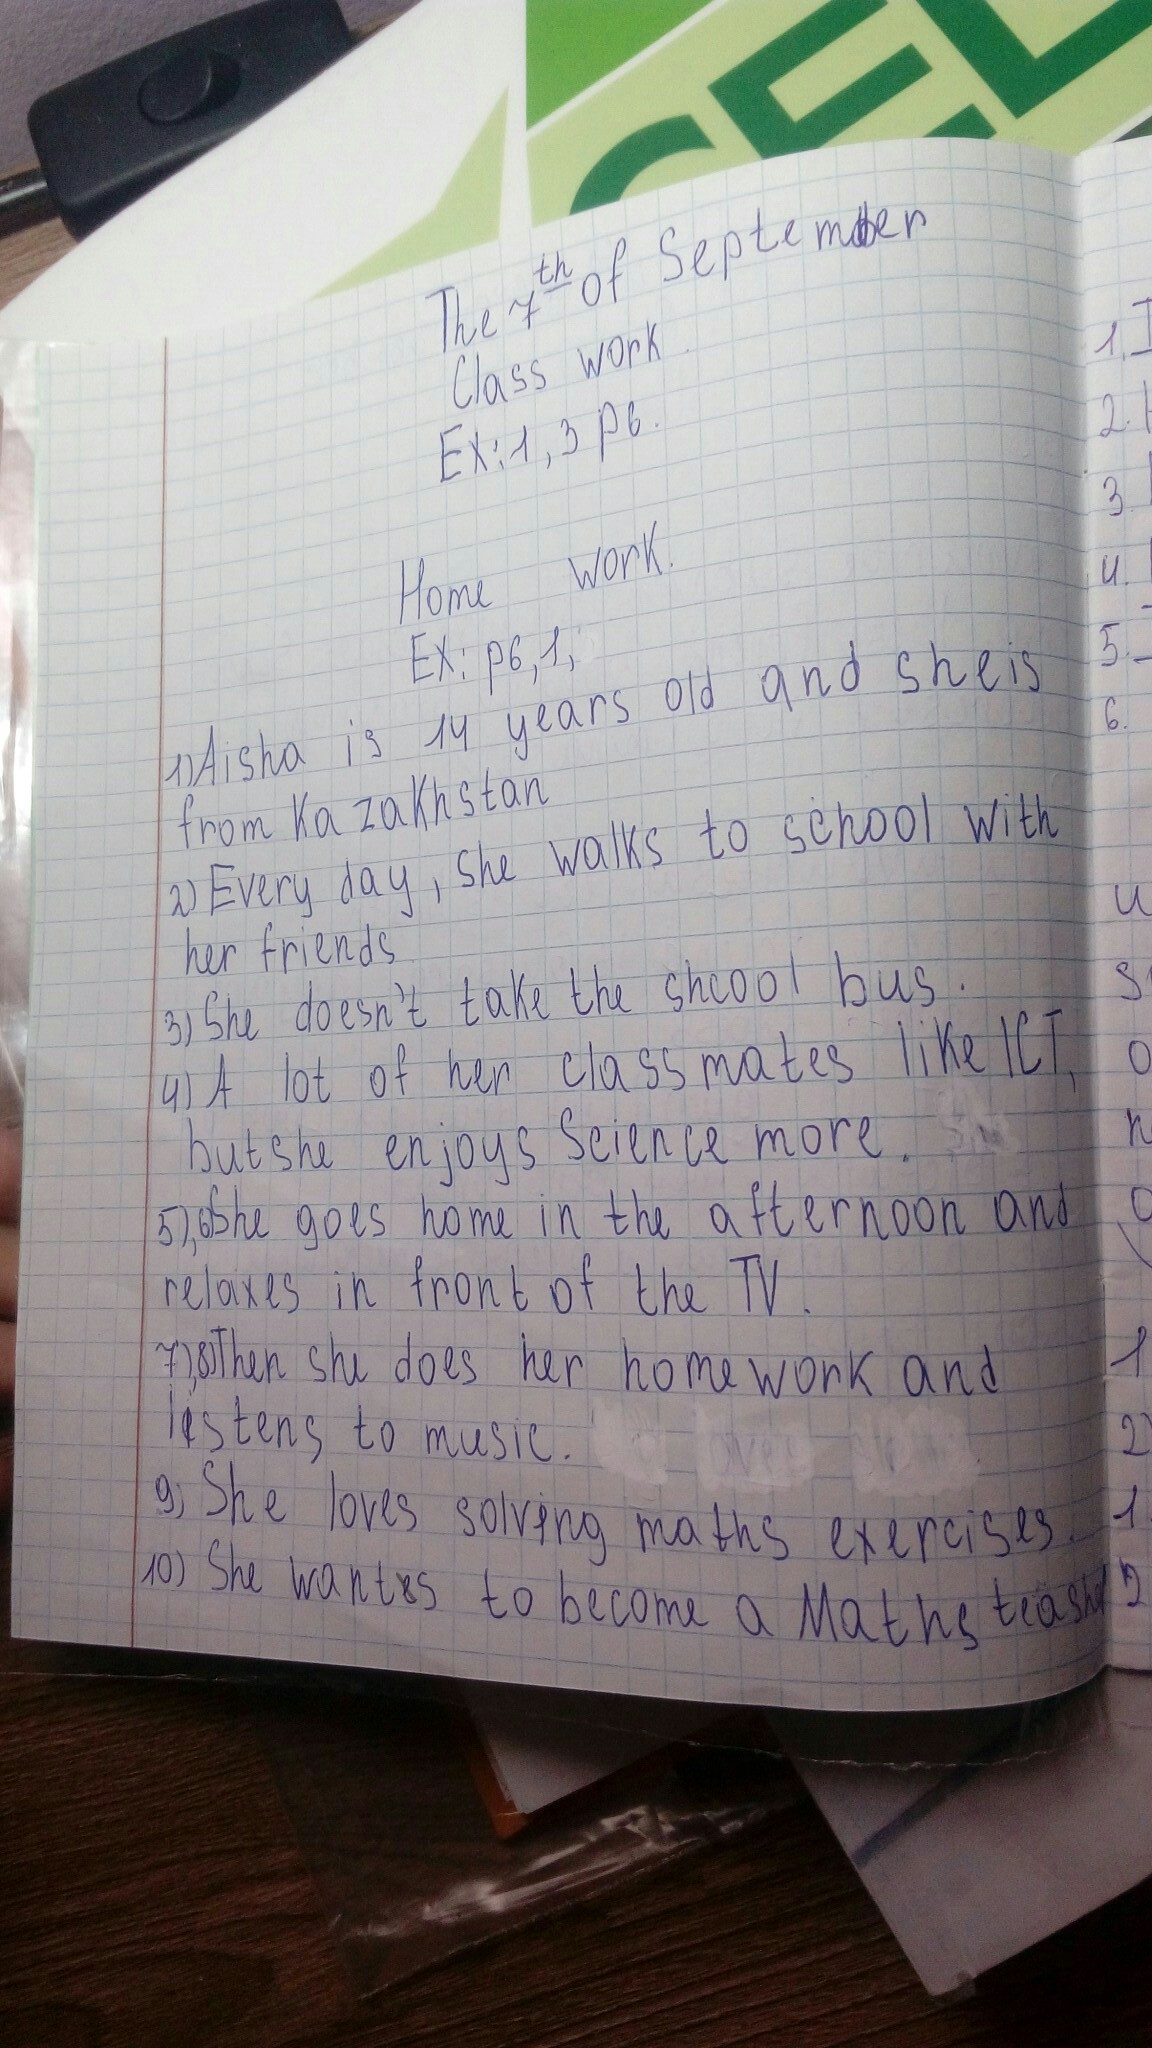 CEL
The 7th of September
Class work.
Ex: 1, 3 p6.
Home work.
Ex: p6, 1,
1) Aisha is 14 years old and she is
from Kazakhstan
2) Every day, she walks to school with
her friends
3) She doesn't take the shcool bus.
4) A lot of her classmates like ICT,
but she enjoys Science more.
5),6) She goes home in the afternoon and
relaxes in front of the TV.
7),8) Then she does her homework and
listens to music.
9) She loves solving maths exercises.
10) She wants to become a Maths
1.
2.
3.
4.
5.
6.
1
2)
1.
2